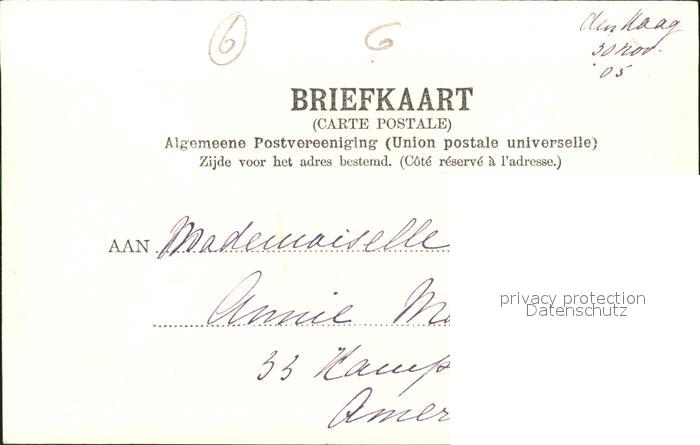 6 6
den Haag
30 Nov.
'05
BRIEFKAART
(CARTE POSTALE)
Algemeene Postvereeniging (Union postale universelle)
Zijde voor het adres bestemd. (Côté réservé à l'adresse.)
AAN Mademoiselle
Annie
privacy protection
Datenschutz
33 Kamp
Amer